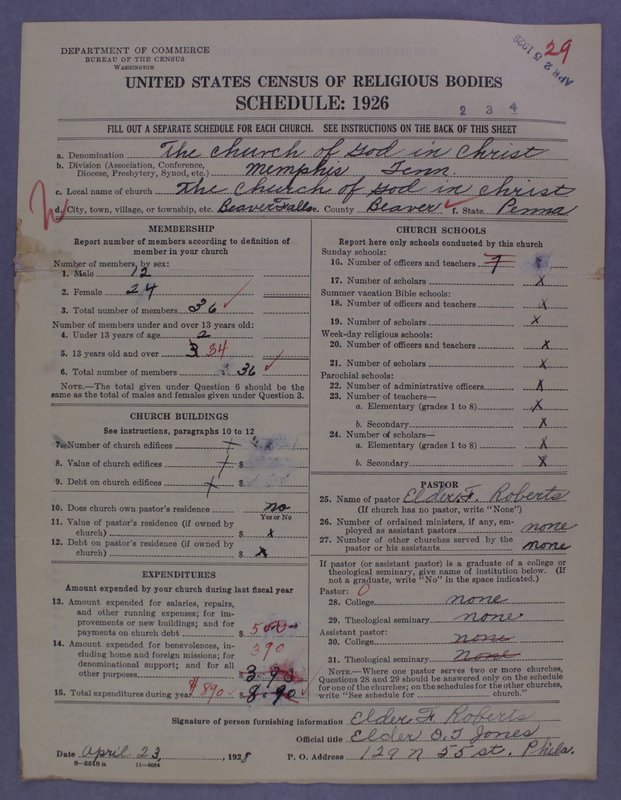 DEPARTMENT OF COMMERCE
BUREAU OF THE CENSUS
WASHINGTON
APR 25 1928
29
UNITED STATES CENSUS OF RELIGIOUS BODIES
SCHEDULE: 1926
2 3 4
FILL OUT A SEPARATE SCHEDULE FOR EACH CHURCH. SEE INSTRUCTIONS ON THE BACK OF THIS SHEET
a. Denomination The Church of God in Christ
b. Division (Association, Conference, Diocese, Presbytery, Synod, etc.) Memphis Tenn.
c. Local name of church The Church of God in Christ
d. City, town, village, or township, etc. Beaver Falls e. County Beaver f. State Penna
MEMBERSHIP
Report number of members according to definition of
member in your church
Number of members, by sex:
1. Male 12
2. Female 24
3. Total number of members 36
Number of members under and over 13 years old:
4. Under 13 years of age 2
5. 13 years old and over 3 34
6. Total number of members 36
NOTE.—The total given under Question 6 should be the
same as the total of males and females given under Question 3.
CHURCH BUILDINGS
See instructions, paragraphs 10 to 12
7. Number of church edifices
8. Value of church edifices $
9. Debt on church edifices $
10. Does church own pastor's residence no
Yes or No
11. Value of pastor's residence (if owned by
church) $ x
12. Debt on pastor's residence (if owned by
church) $ x
EXPENDITURES
Amount expended by your church during last fiscal year
13. Amount expended for salaries, repairs,
and other running expenses; for im-
provements or new buildings; and for
payments on church debt $ 500
14. Amount expended for benevolences, in-
cluding home and foreign missions; for
denominational support; and for all
other purposes $ 390
390
15. Total expenditures during year $890 $ 8.90
CHURCH SCHOOLS
Report here only schools conducted by this church
Sunday schools:
16. Number of officers and teachers 7
17. Number of scholars x
Summer vacation Bible schools:
18. Number of officers and teachers x
19. Number of scholars x
Week-day religious schools:
20. Number of officers and teachers x
21. Number of scholars x
Parochial schools:
22. Number of administrative officers x
23. Number of teachers—
a. Elementary (grades 1 to 8) x
b. Secondary x
24. Number of scholars—
a. Elementary (grades 1 to 8) x
b. Secondary x
PASTOR
25. Name of pastor Elder F. Roberts
(If church has no pastor, write "None")
26. Number of ordained ministers, if any, em-
ployed as assistant pastors none
27. Number of other churches served by the
pastor or his assistants none
If pastor (or assistant pastor) is a graduate of a college or
theological seminary, give name of institution below. (If
not a graduate, write "No" in the space indicated.)
Pastor: 0
28. College none
29. Theological seminary none
Assistant pastor:
30. College none
31. Theological seminary none
NOTE.—Where one pastor serves two or more churches,
Questions 28 and 29 should be answered only on the schedule
for one of the churches; on the schedules for the other churches,
write "See schedule for church."
Signature of person furnishing information Elder F Roberts
Official title Elder O. T Jones
Date April 23, 1928 P. O. Address 129 N 55 st. Phila.
8-5518 a 11-9034